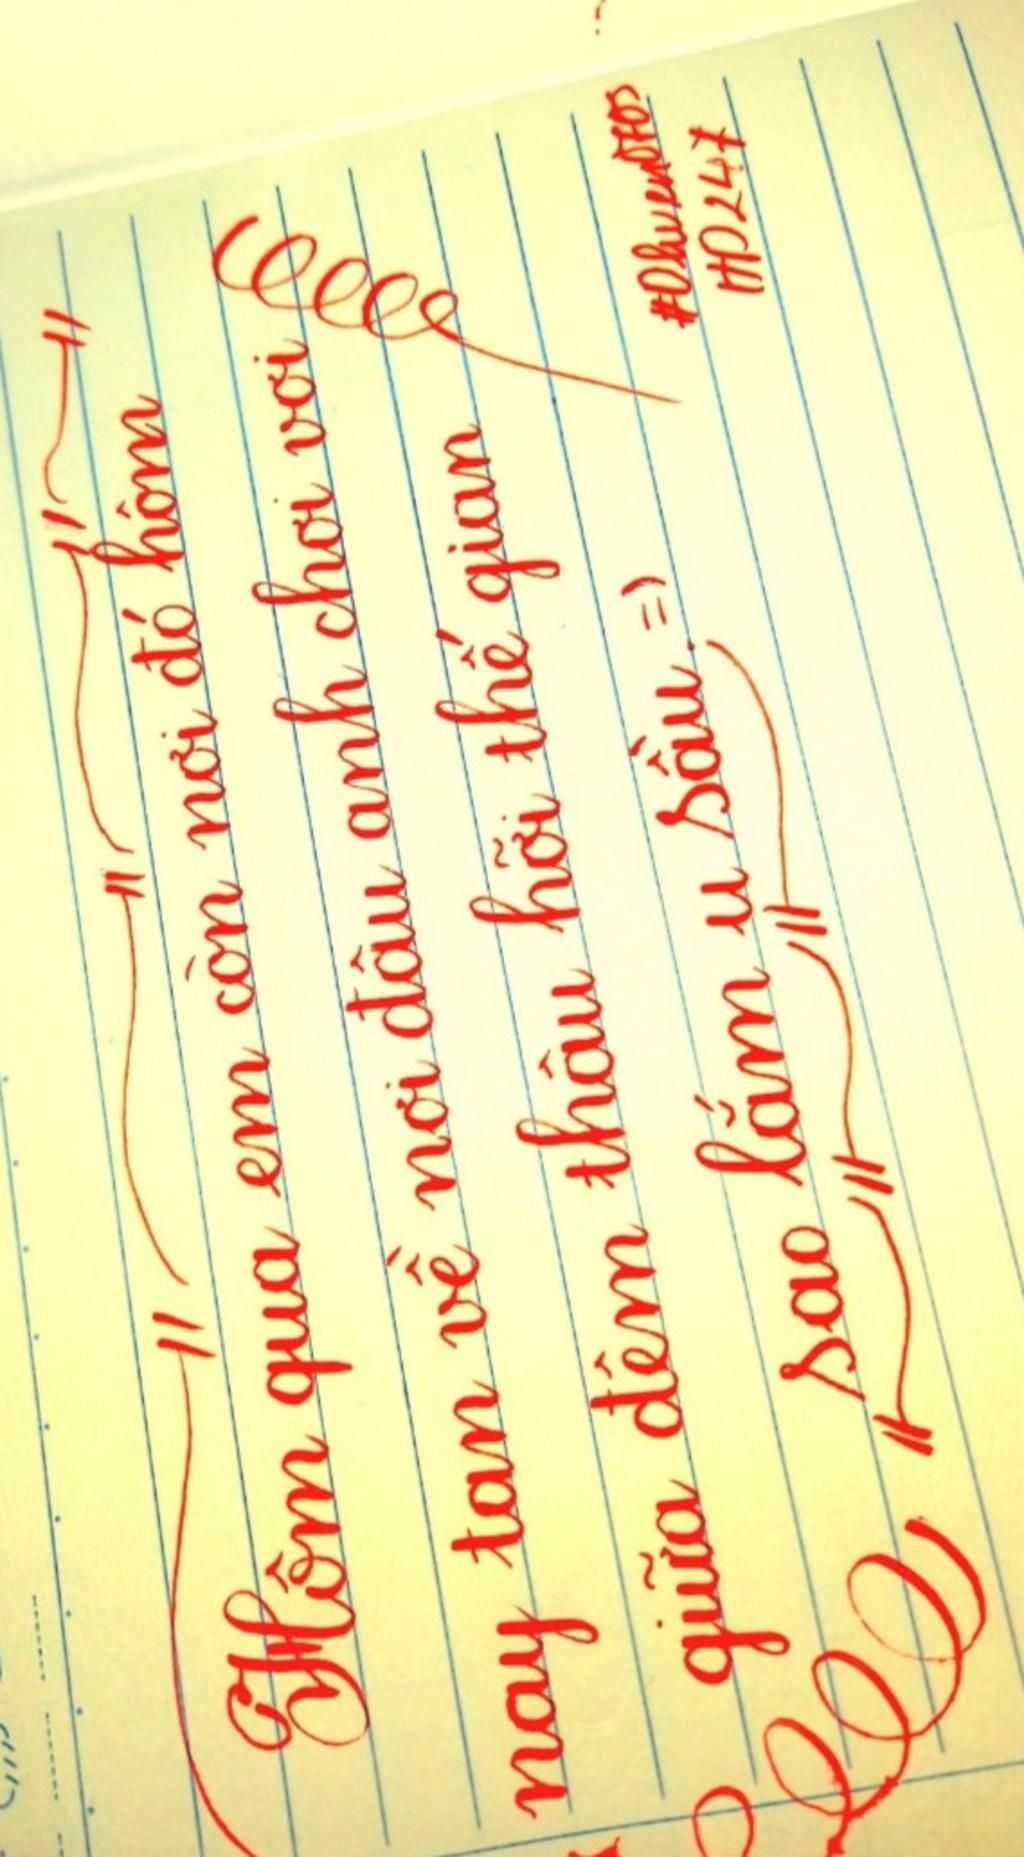 Hôm qua em còn nơi đó hôm
nay tan về nơi đâu anh chơi vơi
giữa đêm thâu hỡi thế gian
sao lắm u sầu. =)
HD247